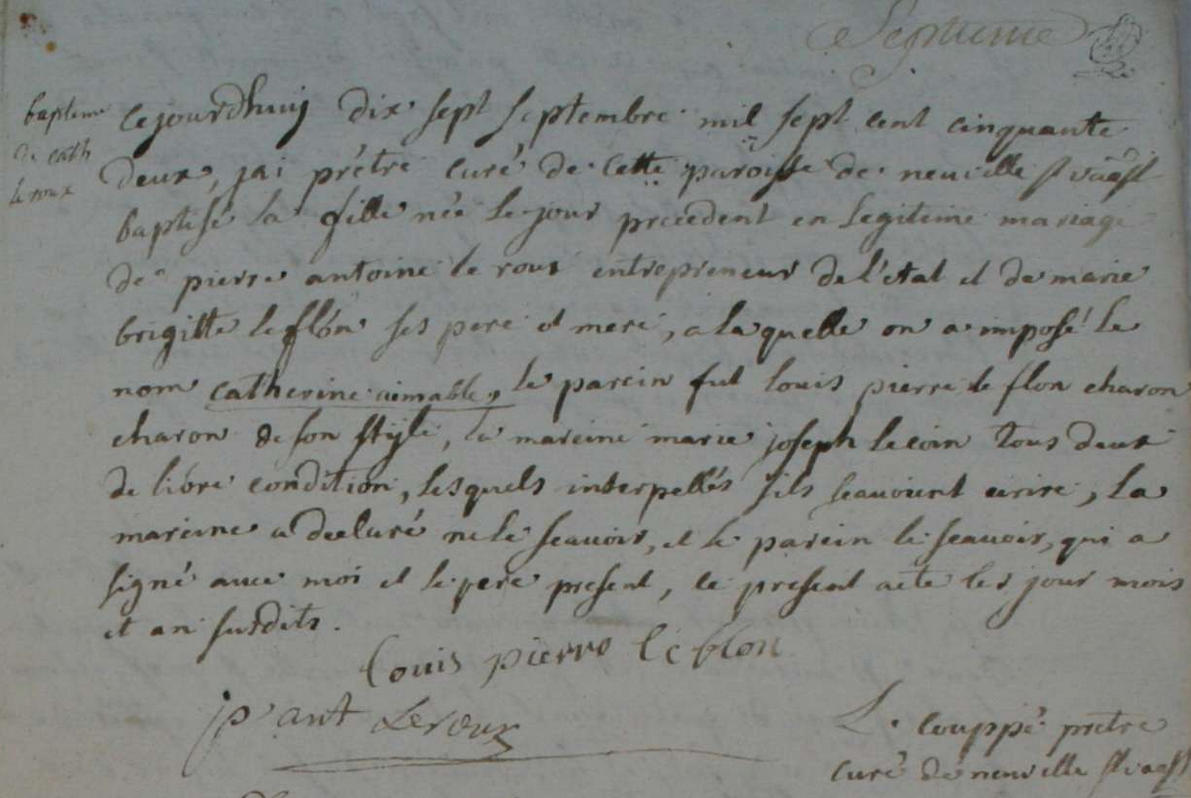 Septieme
bapteme
de cath
le roux
cejourdhuij dix sept septembre mil sept cent cinquante
deux, jai prêtre curé de cette paroisse de neuville st vaast
baptisé la fille née le jour precedent en legiteme mariage
de pierre antoine le roux entrepreneur de l'etat et de marie
brigitte leflon ses pere et mere, a laquelle on a imposé le
nom catherine aimable, le parein fut louis pierre le flon charon
charon de son stÿle, la mareine marie joseph lecoin tous deux
de libre condition, lesquels interpellés sils scavoient ecrire, la
mareine a declaré ne le scavoir, et le parein le scavoir, qui a
signé avec moi et le pere present, le present acte les jour mois
et an susdits.
louis pierre le flon
p. ant Leroux
L. couppé prêtre
curé de neuville st vaast